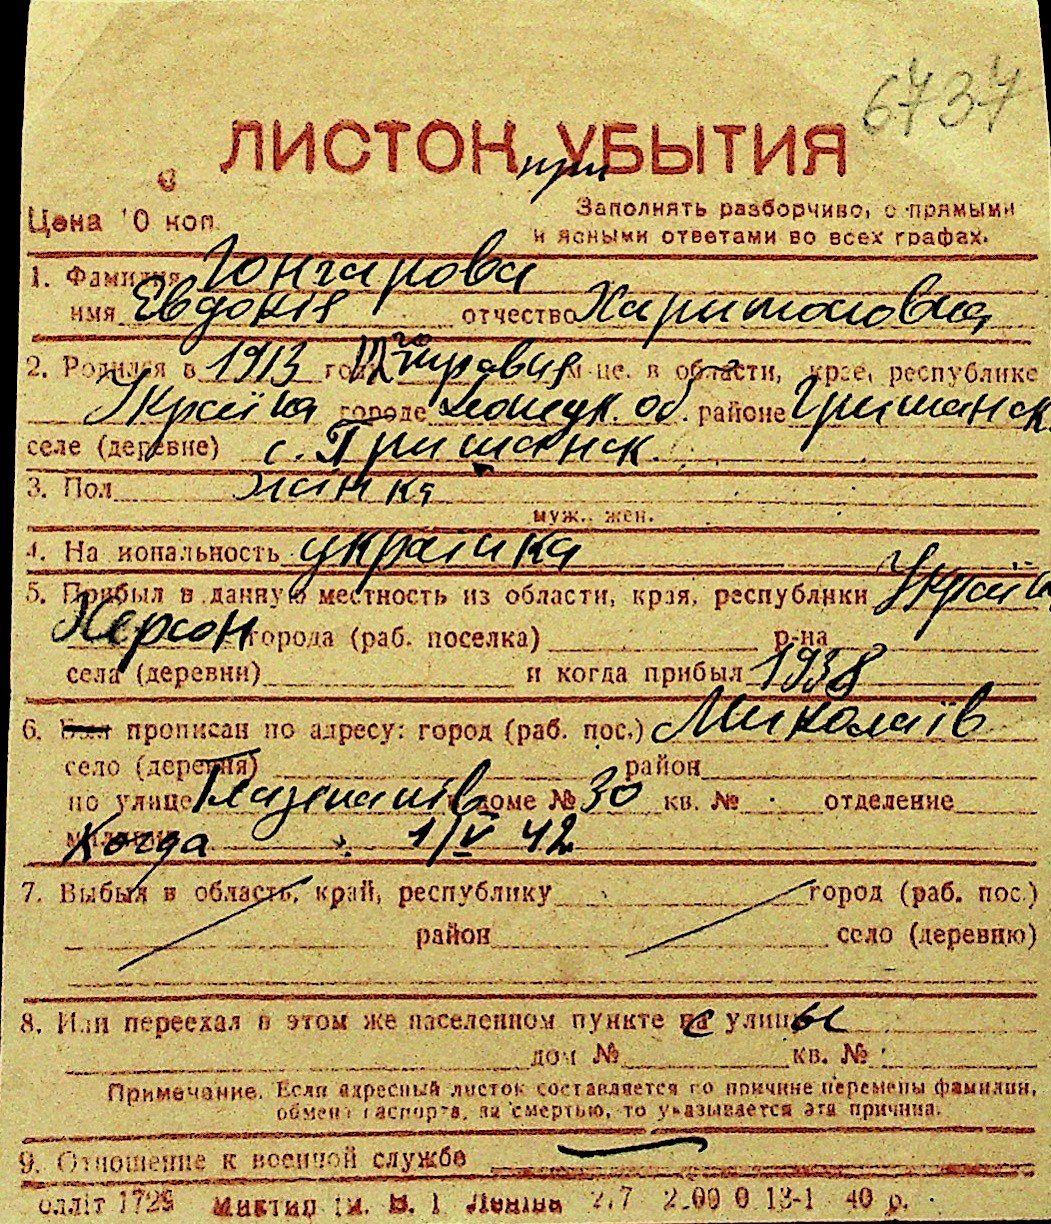 6737
ЛИСТОК УБЫТИЯ
при
Цена 10 коп.
Заполнять разборчиво, с прямыми
и ясными ответами во всех графах.
1. Фамилия Гончарова
имя Евдокія отчество Харитоновна
2. Родился в 1913 году 17го травня м-це, в области, крае, республике
Україна городе Донецк. об. районе Гришинск.
селе (деревне) с. Гришинск.
3. Пол жінка
муж., жен.
4. Национальность українка
5. Прибыл в данную местность из области, края, республики Україна
Херсон города (раб. поселка) р-на
села (деревни) и когда прибыл 1938
6. Был прописан по адресу: город (раб. пос.) Миколаїв
село (деревня) район
по улице в доме № 30 кв. № отделение
милиции Когда 1/V 42
7. Выбыл в область, край, республику город (раб. пос.)
район село (деревню)
8. Или переехал в этом же населенном пункте с улицы
дом № кв. №
Примечание. Если адресный листок составляется по причине перемены фамилии,
обмена паспорта, за смертью, то указывается эта причина.
9. Отношение к военной службе
оллiт 1729 ім. В. І Леніна 40 р.